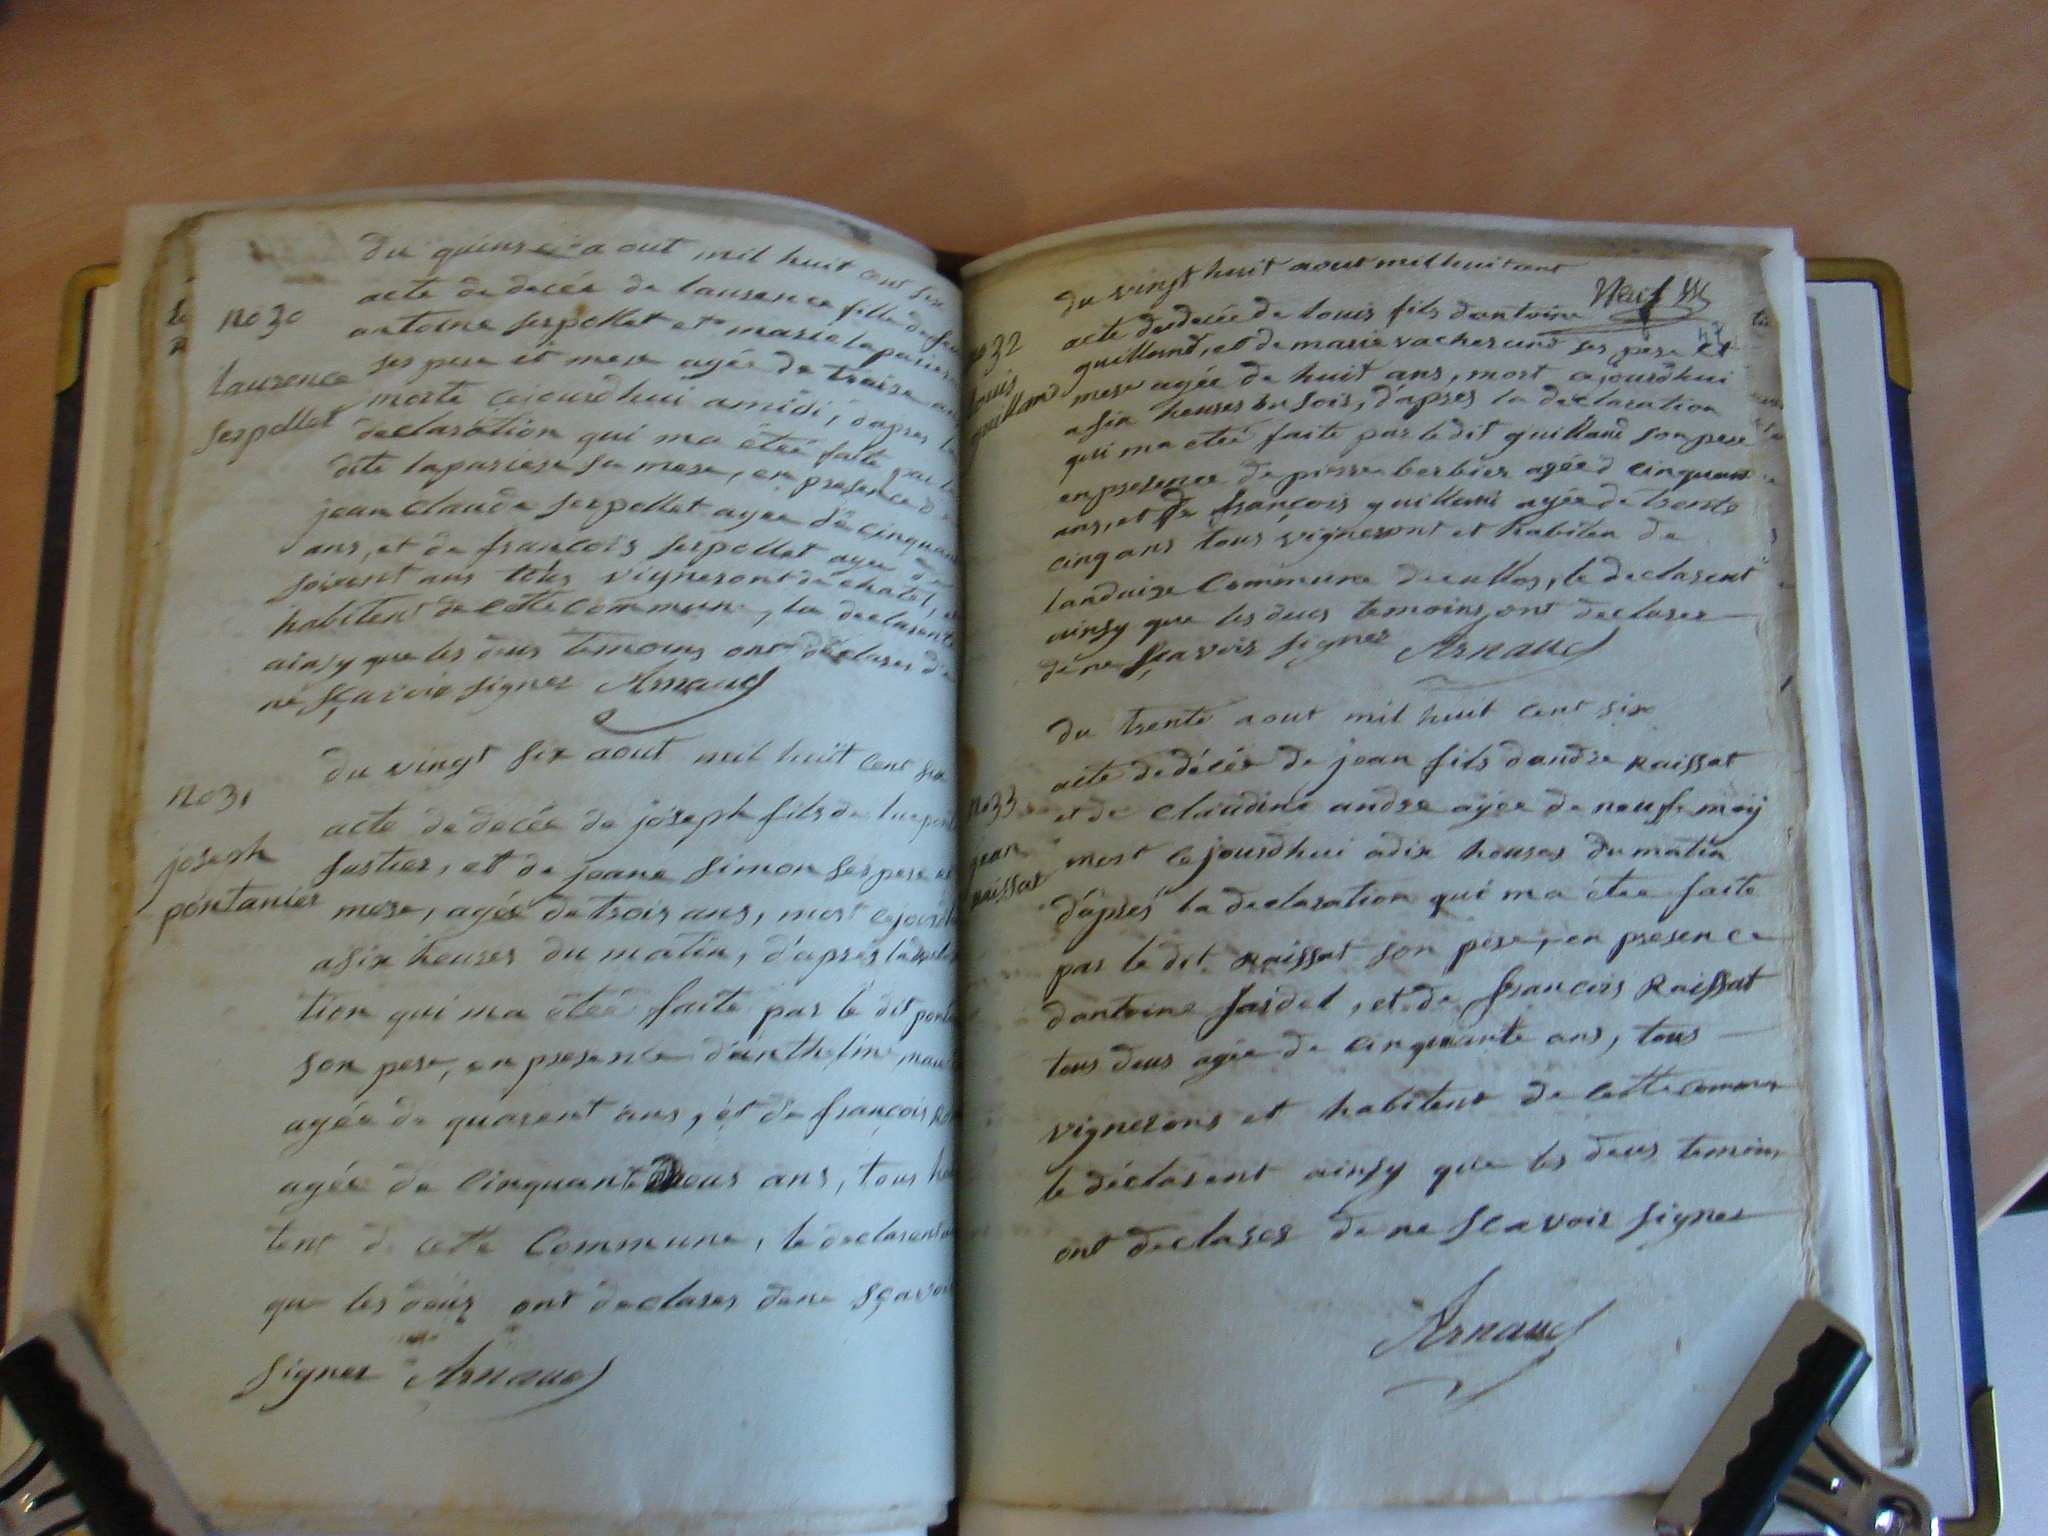 du quinse aout mil huit cent six
no 30
acte de decée de laurence fille de feu
antoine serpollet et marie lapariere
laurence
ses pere et mere agée de treise ans
serpollet
morte cejourdhui a midi, daprés la
declaration qui ma étéé faite par la
dite lapariere sa mere, en presence de
jean claude serpollet agée de cinquante
ans, et de francois serpollet agée de
soixent ans tous vigneront de chatel, et
habitent de cette commune, la declarente
ainsy que les deus temoins ont déclarer de
ne sçavoir signer Arnaud
du vingt six aout mil huit cent six
no 31
acte de decée de joseph fils de
joseph
pontanier
et de jeane simon ses pere et
mere, agée de trois ans, mort cejourdhui
a six heures du matin, d'aprés la
tion qui ma étéé faite par le dit
son pere, en presence d'anthelme
agée de quarent ans, et de françois
agée de cinquante ans, tous
tent de cette commune, le declarent
que les deus ont declarer de ne sçavoir
signer Arnaud
du vingt huit aout mil huit cent
47
no 32
acte de decée de louis fils dantoine
guilland, et de marie vacherand ses pere et
louis
guilland
mere agée de huit ans, mort cejourdhui
a six heures du soir, d'apres la declaration
qui ma étéé faite par le dit guilland son pere
en presence de pierre berbier agée d cinquant
ans, et de françois guilland agée de trente
cinq ans tous vigneront et habiten de
landaize commune de , le declarent
ainsy que les deus temoins ont declarer
de ne sçavoir signer Arnaud
du trente aout mil huit cent six
acte de décée de jean fils dandre Raissat
no 33
et de claudine andre agée de neufs moij
jean
raissat
mort cejourdhui a dix heures du matin
d'aprés la declaration qui ma étée faite
par le dit Raissat son pere, en presence
dantoine Jardel, et de françois Raissat
tous deus agée de cinquante ans, tous
vignerons et habitent de cette commun
le déclarent ainsy que les deus temoins
ont declarer de ne scavoir signer
Arnaud